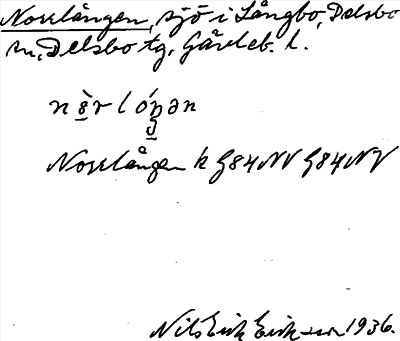 Norrlången, sjö i Långbo, Delsbo
sn, Delsbo tg, Gävleb. l.
Norrlången k G84NV G84NV
Nils Erik Eriksson 1936.